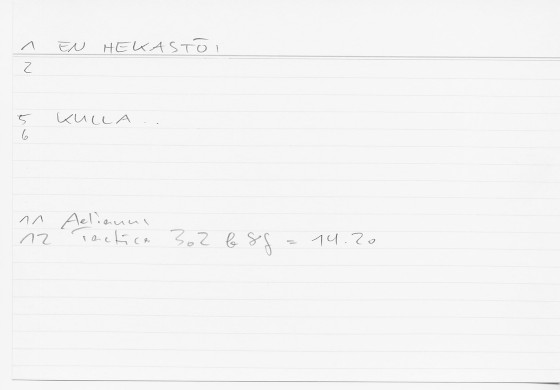 1 EN HEKASTŌI
2
5 KULLA ..
6
11 Aelianus
12 Tactica 3.2 b 8f = 14.20